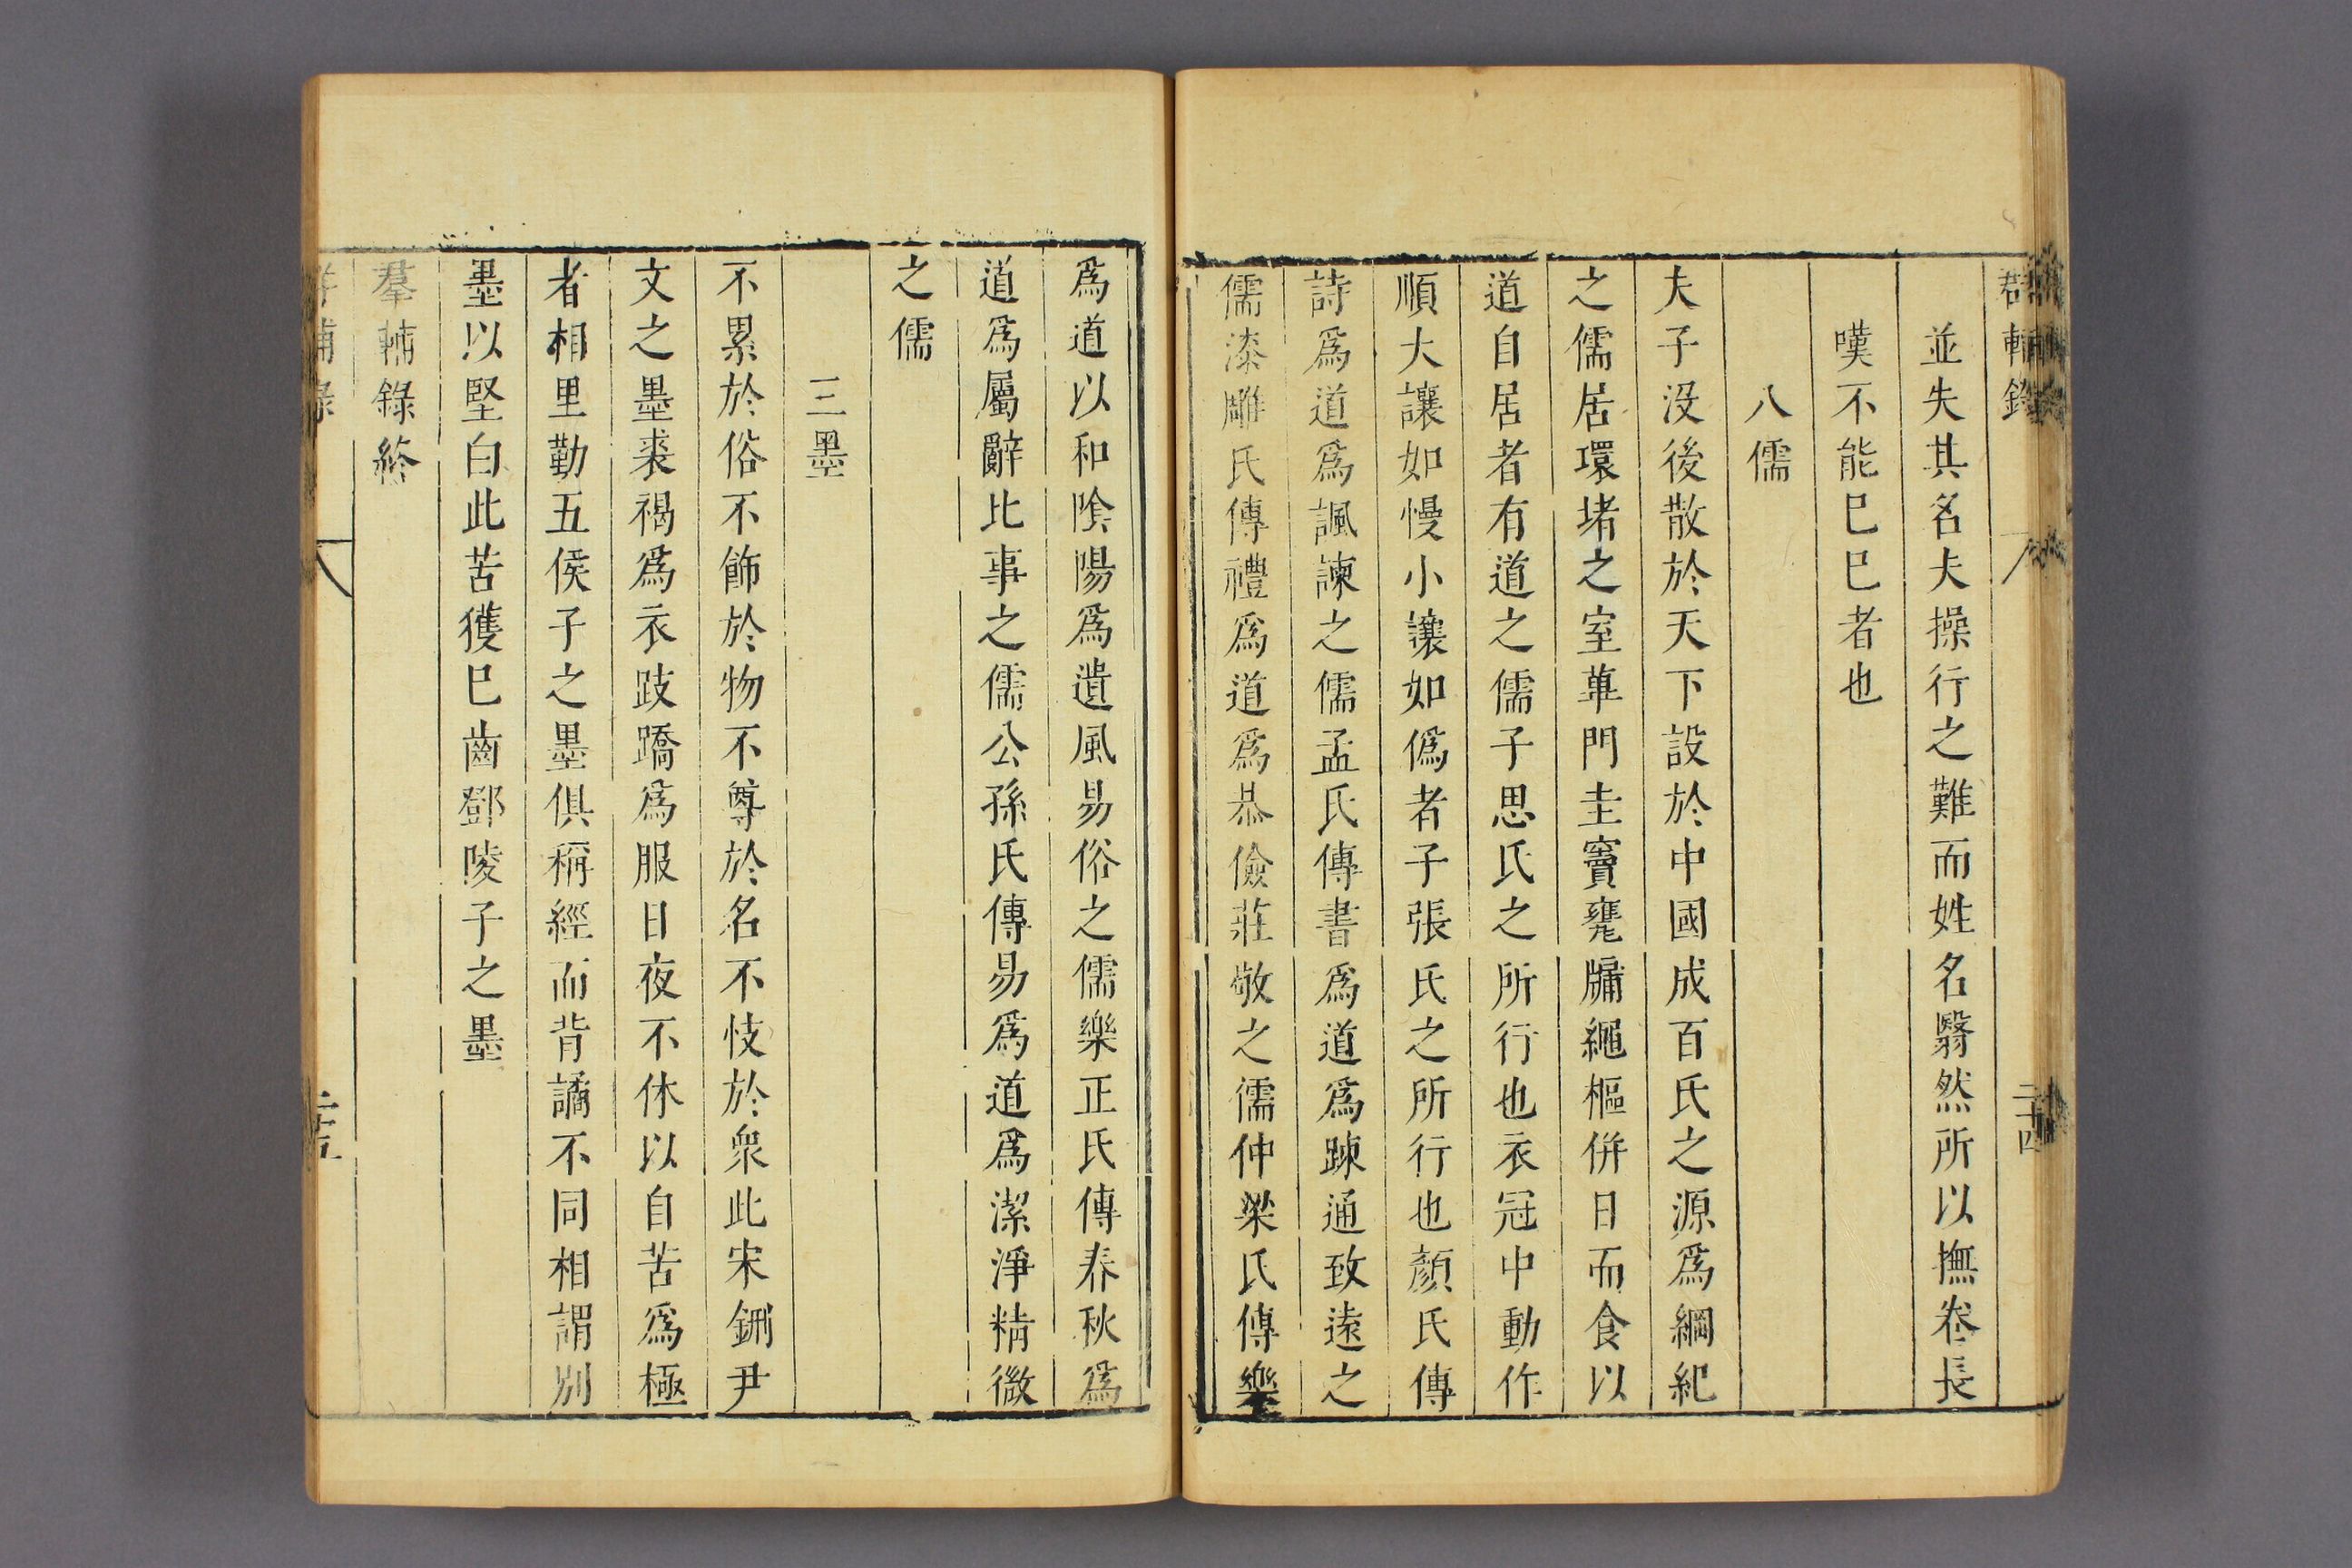 並失其名夫操行之難而姓名翳然所以撫卷長
嘆不能巳巳者也
八儒
夫子没後散於天下設於中國成百氏之源爲綱紀
之儒居環堵之室蓽門圭竇甕牖繩樞併日而食以
道自居者有道之儒子思氏之所行也衣冠中動作
順大讓如慢小讓如僞者子張氏之所行也顏氏傳
詩爲道爲諷諫之儒孟氏傳書爲道爲踈通致遠之
儒漆雕氏傳禮爲道爲恭儉莊敬之儒仲梁氏傳樂
爲道以和隂陽爲遺風易俗之儒樂正氏傳春秋爲
道爲屬辭比事之儒公孫氏傳易爲道爲潔淨精微
之儒
三墨
不累於俗不飾於物不尊於名不忮於衆此宋鈃尹
文之墨裘褐爲衣跂蹻爲服日夜不休以自苦爲極
者相里勤五侯子之墨俱稱經而背譎不同相謂别
墨以堅白此苦獲巳齒鄧陵子之墨
羣輔錄終
二十四